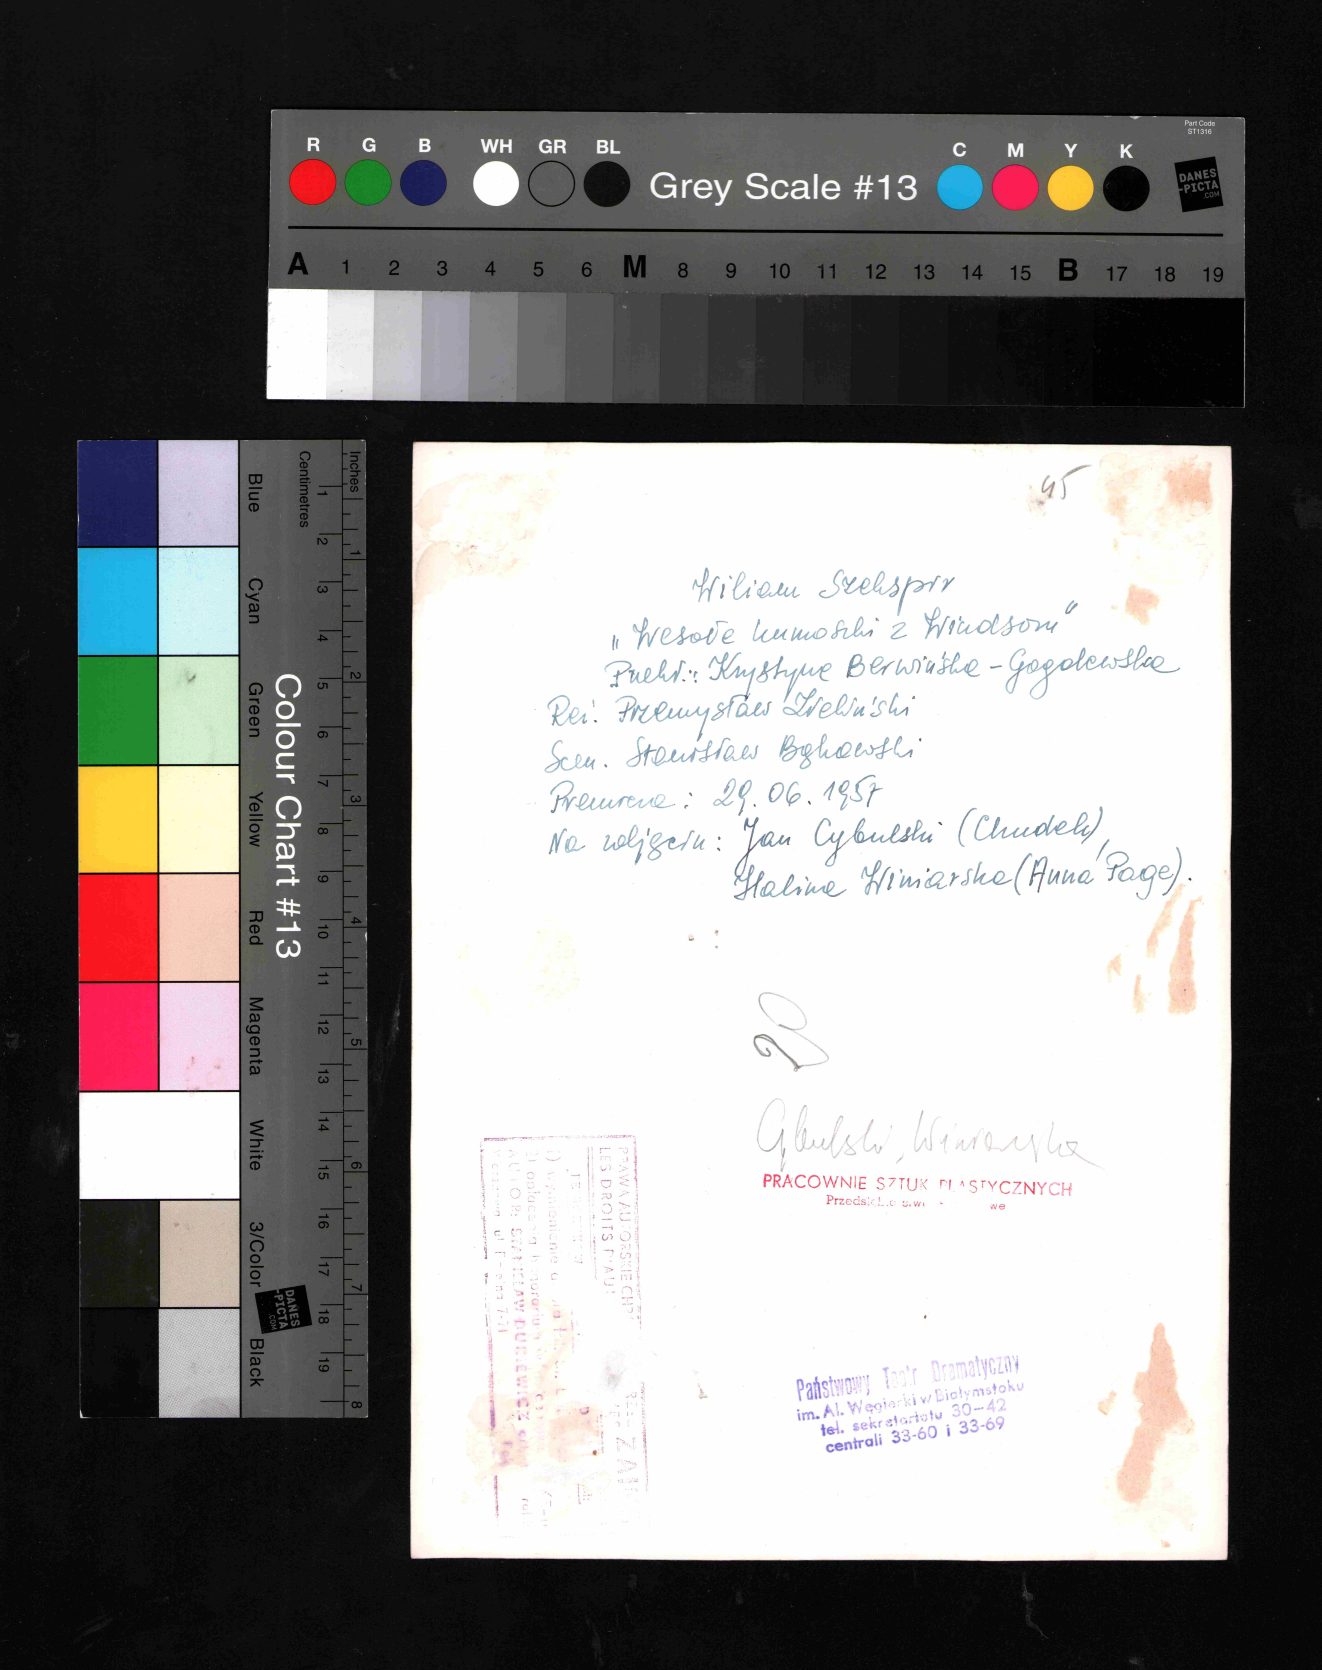 Part Code
ST1316
R G B WH GR BL
Grey Scale #13
C M Y K
DANES
-PICTA
.COM
A 1 2 3 4 5 6 M 8 9 10 11 12 13 14 15 B 17 18 19
Inches
Centimetres
1 2 3 4 5 6 7 8 9 10 11 12 13 14 15 16 17 18 19
1 2 3 4 5 6 7 8
Colour Chart #13
Blue
Cyan
Green
Yellow
Red
Magenta
White
3/Color
Black
DANES
-PICTA
.COM
45
Wiliam Szekspir
„Wesołe kumoszki z Windsoru"
Przekł.: Krystyna Berwińska - Gogolewska
Reż. Przemysław Zieliński
Scen. Stanisław Bąkowski
Premiera: 29.06.1957
Na zdjęciu: Jan Cybulski (Chudek),
Halina Winiarska (Anna Page).
Cybulski, Winiarska
PRACOWNIE SZTUK PLASTYCZNYCH
PRAWA AUTORSKIE
LES DROITS
AUTOR
Państwowy Teatr Dramatyczny
im. Al. Węgierki w Białymstoku
tel. sekretariatu 30-42
centrali 33-60 i 33-69